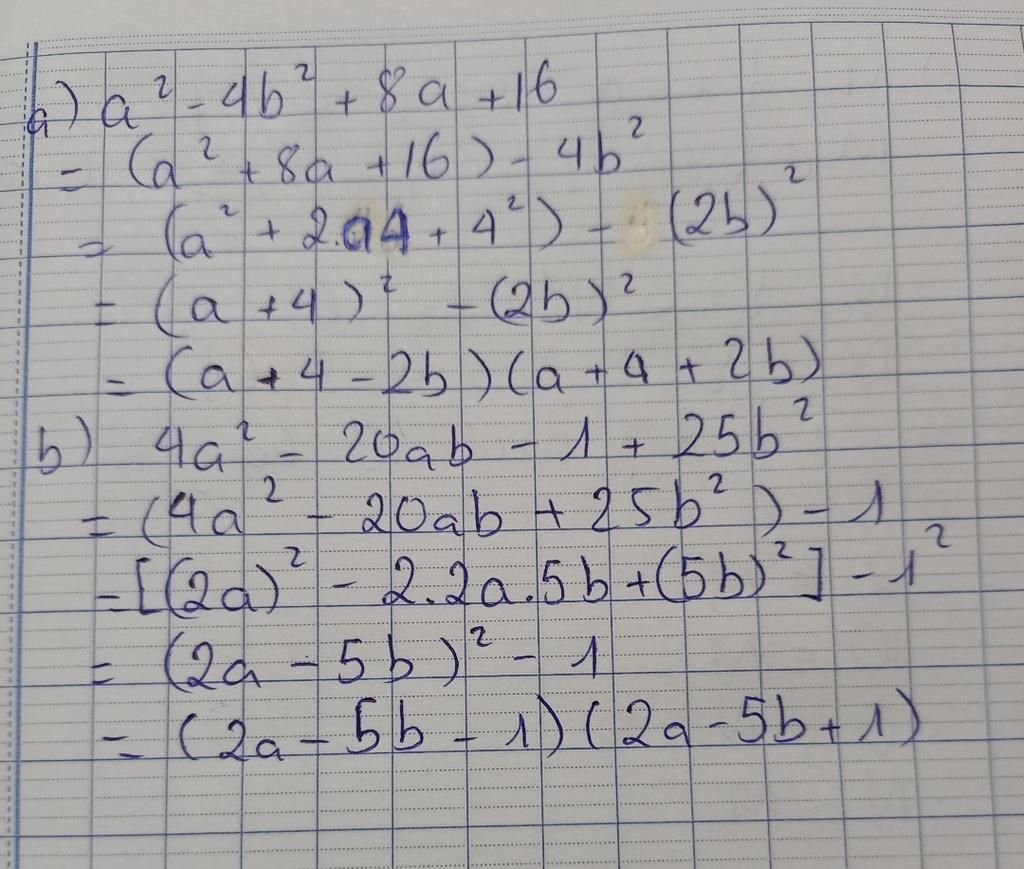 a) a² - 4b² + 8a + 16
= (a² + 8a + 16) - 4b²
= (a² + 2.a4 + 4²) - (2b)²
= (a + 4)² - (2b)²
= (a + 4 - 2b)(a + 4 + 2b)
b) 4a² - 20ab - 1 + 25b²
= (4a² - 20ab + 25b²) - 1
= [(2a)² - 2.2a.5b + (5b)²] - 1²
= (2a - 5b)² - 1
= (2a - 5b - 1)(2a - 5b + 1)